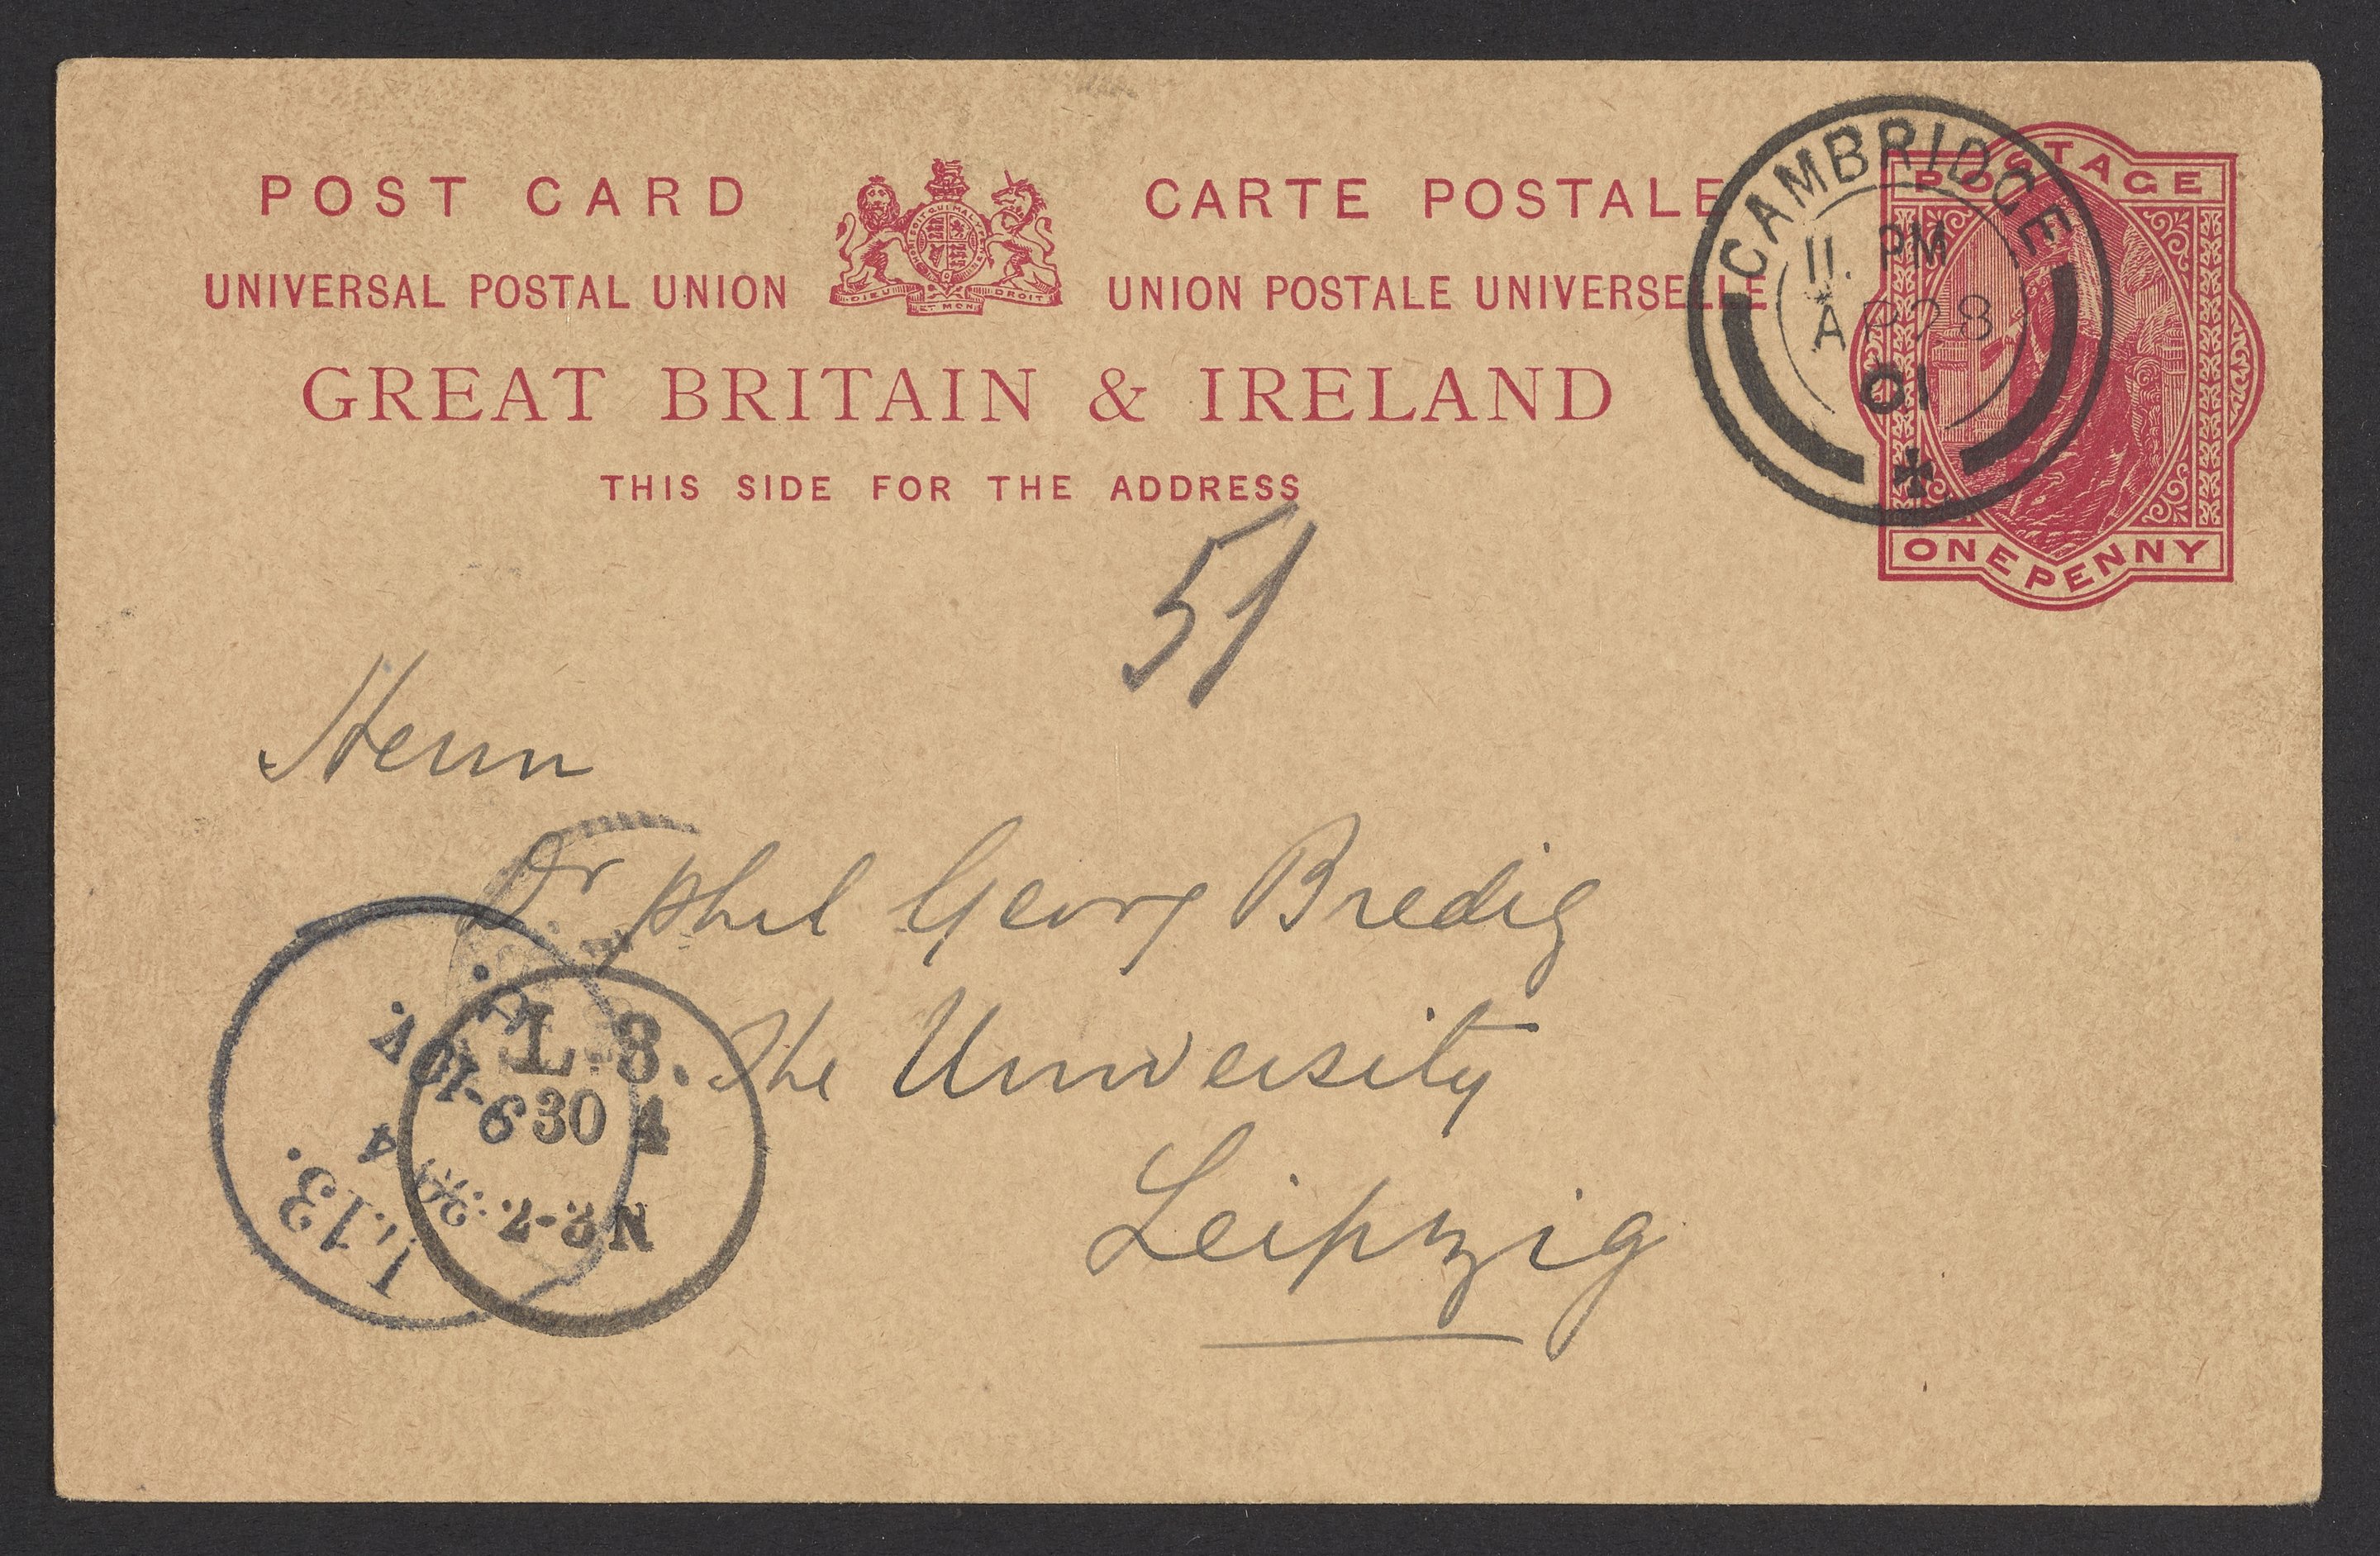 POST CARD
CARTE POSTALE
UNIVERSAL POSTAL UNION
UNION POSTALE UNIVERSELLE
DIEU ET MON DROIT
GREAT BRITAIN & IRELAND
THIS SIDE FOR THE ADDRESS
POSTAGE
ONE PENNY
CAMBRIDGE
11. PM
AP 28
01
51
Herrn
Dr. phil Georg Bredig
The University
Leipzig
L.3.
30 4
2-3N
L.13.